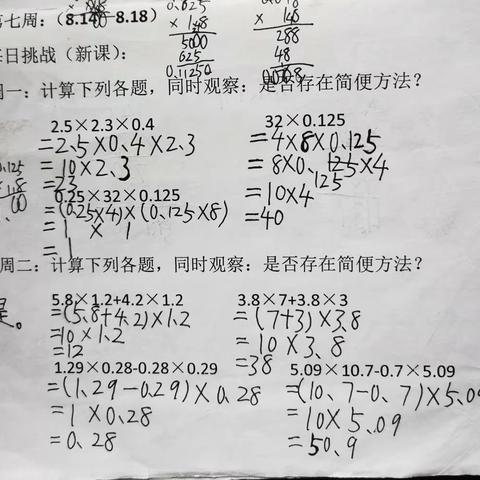 第七周：（8.14—8.18）
0.625
× 1.8
5000
625
0.11250
× 1.8
288
48
每日挑战（新课）：
周一：计算下列各题，同时观察：是否存在简便方法？
2.5×2.3×0.4
=2.5×0.4×2.3
=10×2.3
=23
32×0.125
=4×8×0.125
=8×0.125×4
=10×4
=40
0.25×32×0.125
=(0.25×4)×(0.125×8)
= 1 × 1
= 1
周二：计算下列各题，同时观察：是否存在简便方法？
是。
5.8×1.2+4.2×1.2
=(5.8+4.2)×1.2
=10×1.2
=12
3.8×7+3.8×3
=(7+3)×3.8
=10×3.8
=38
1.29×0.28-0.28×0.29
=(1.29-0.29)×0.28
=1×0.28
=0.28
5.09×10.7-0.7×5.09
=(10.7-0.7)×5.09
=10×5.09
=50.9